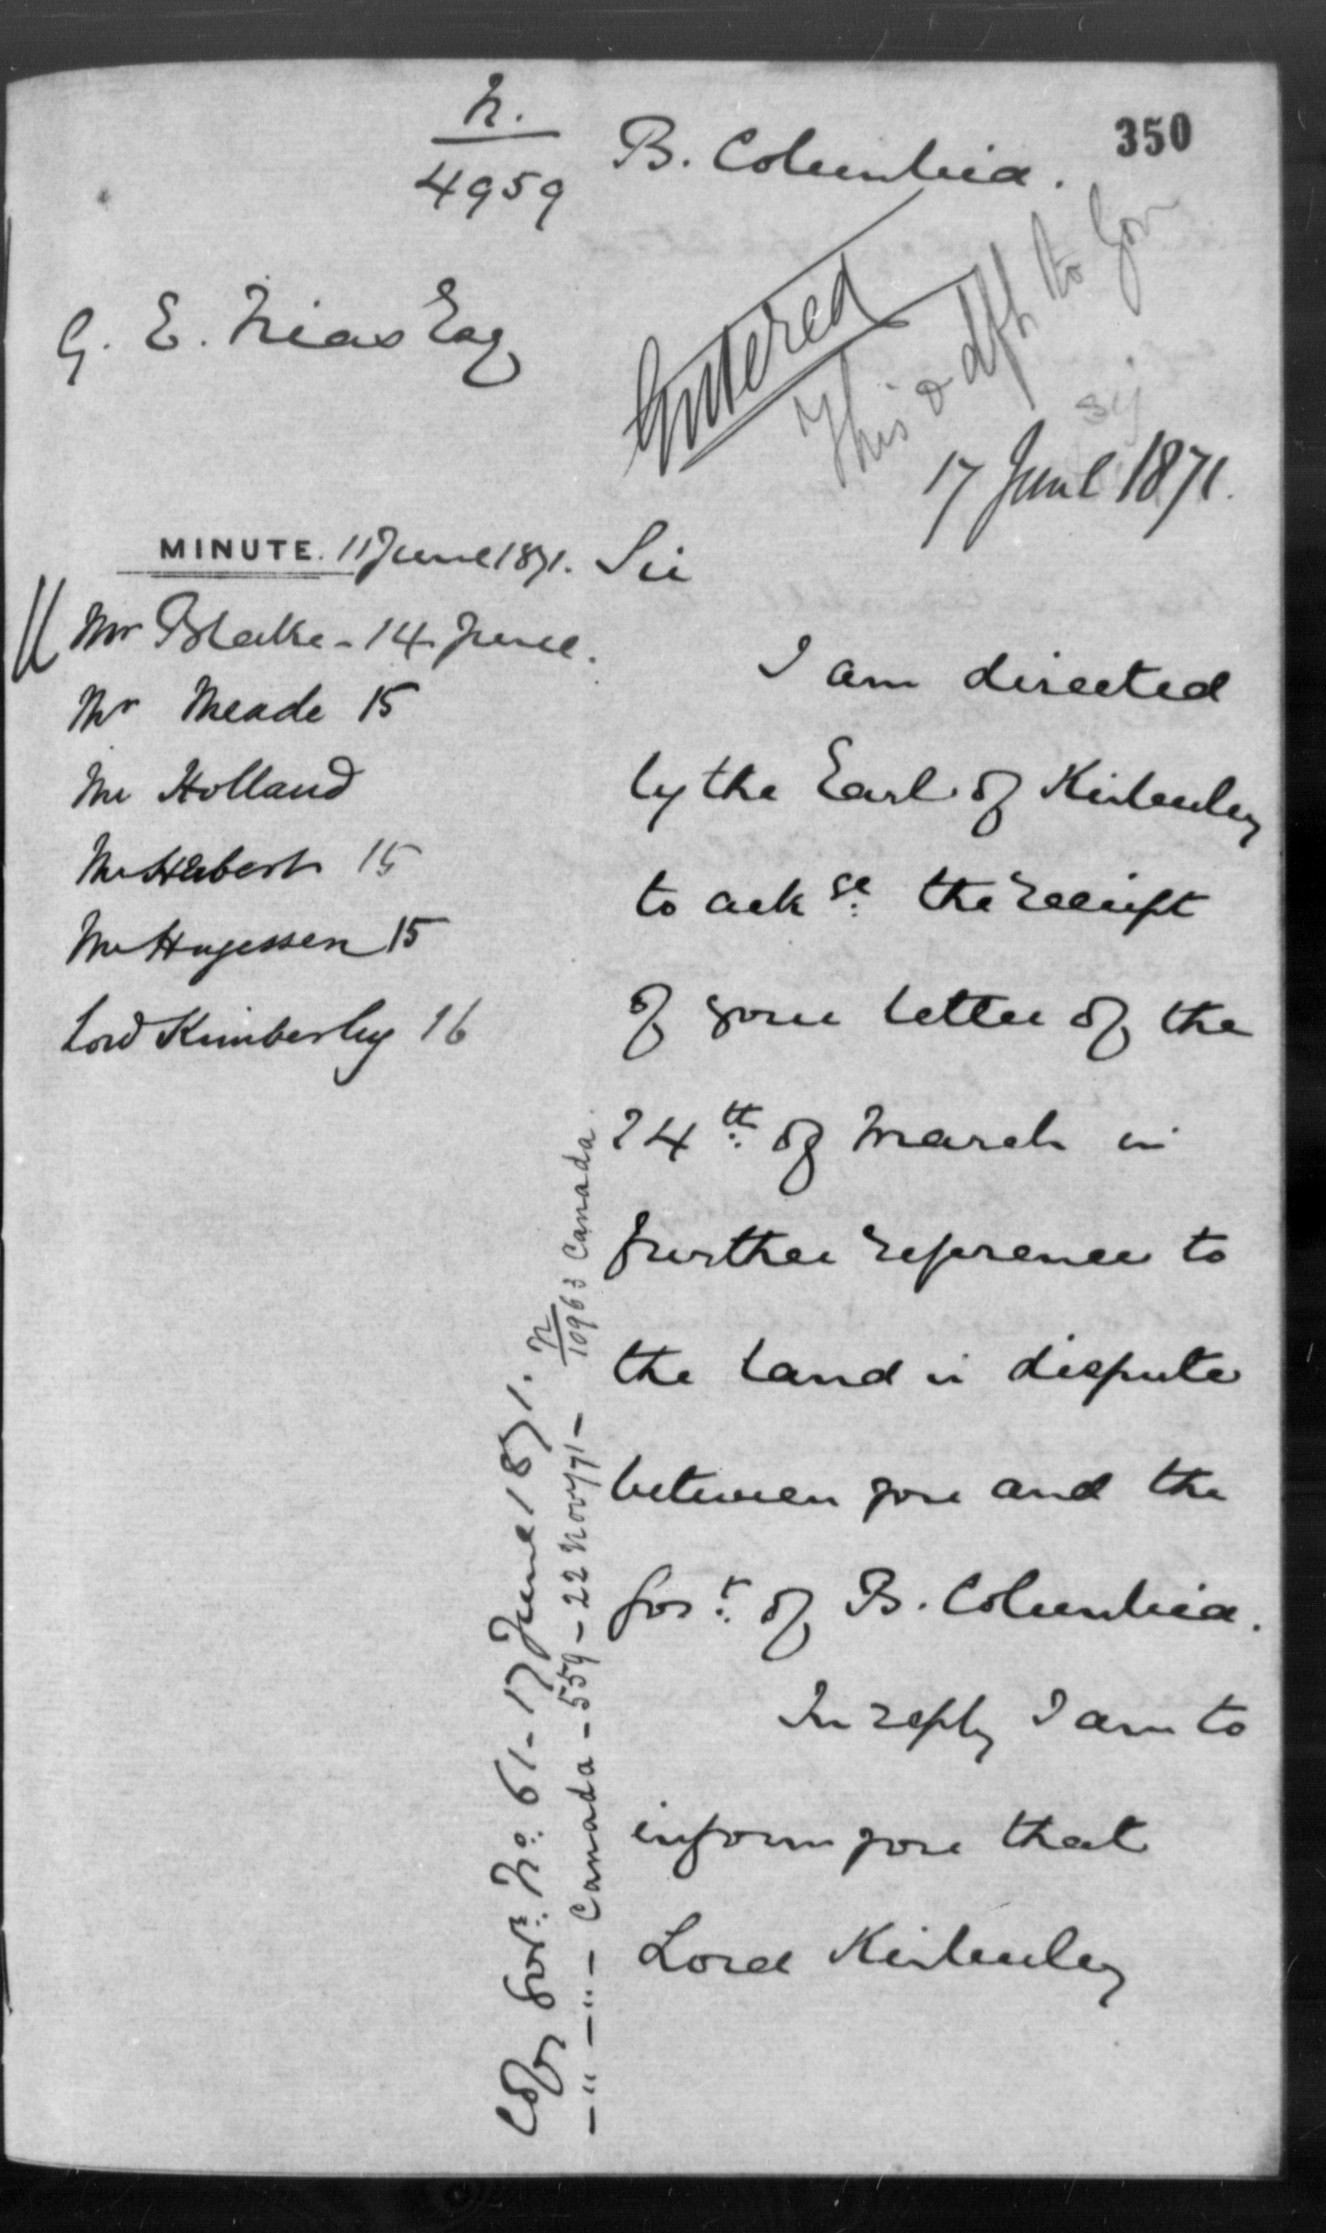 N.
4959
B. Columbia.
350
G. E. Nias Esq
Entered
This & dft to Gov
17 June 1871.
MINUTE. 11 June 1871.
Mr Blake - 14 June.
Mr Meade 15
Mr Holland
Mr Herbert 15
Mr Hugessen 15
Lord Kimberley 16
Sir
I am directed
by the Earl of Kimberley
to ack ge. the receipt
of your letter of the
24th. of March in
further reference to
the land in dispute
between you and the
Govt. of B. Columbia.
In reply I am to
inform you that
Lord Kimberley
Copy Govr. No. 61 - 17 June 1871.
— " — " — Canada - 559 - 22 Nov/71 - N/10963 Canada.